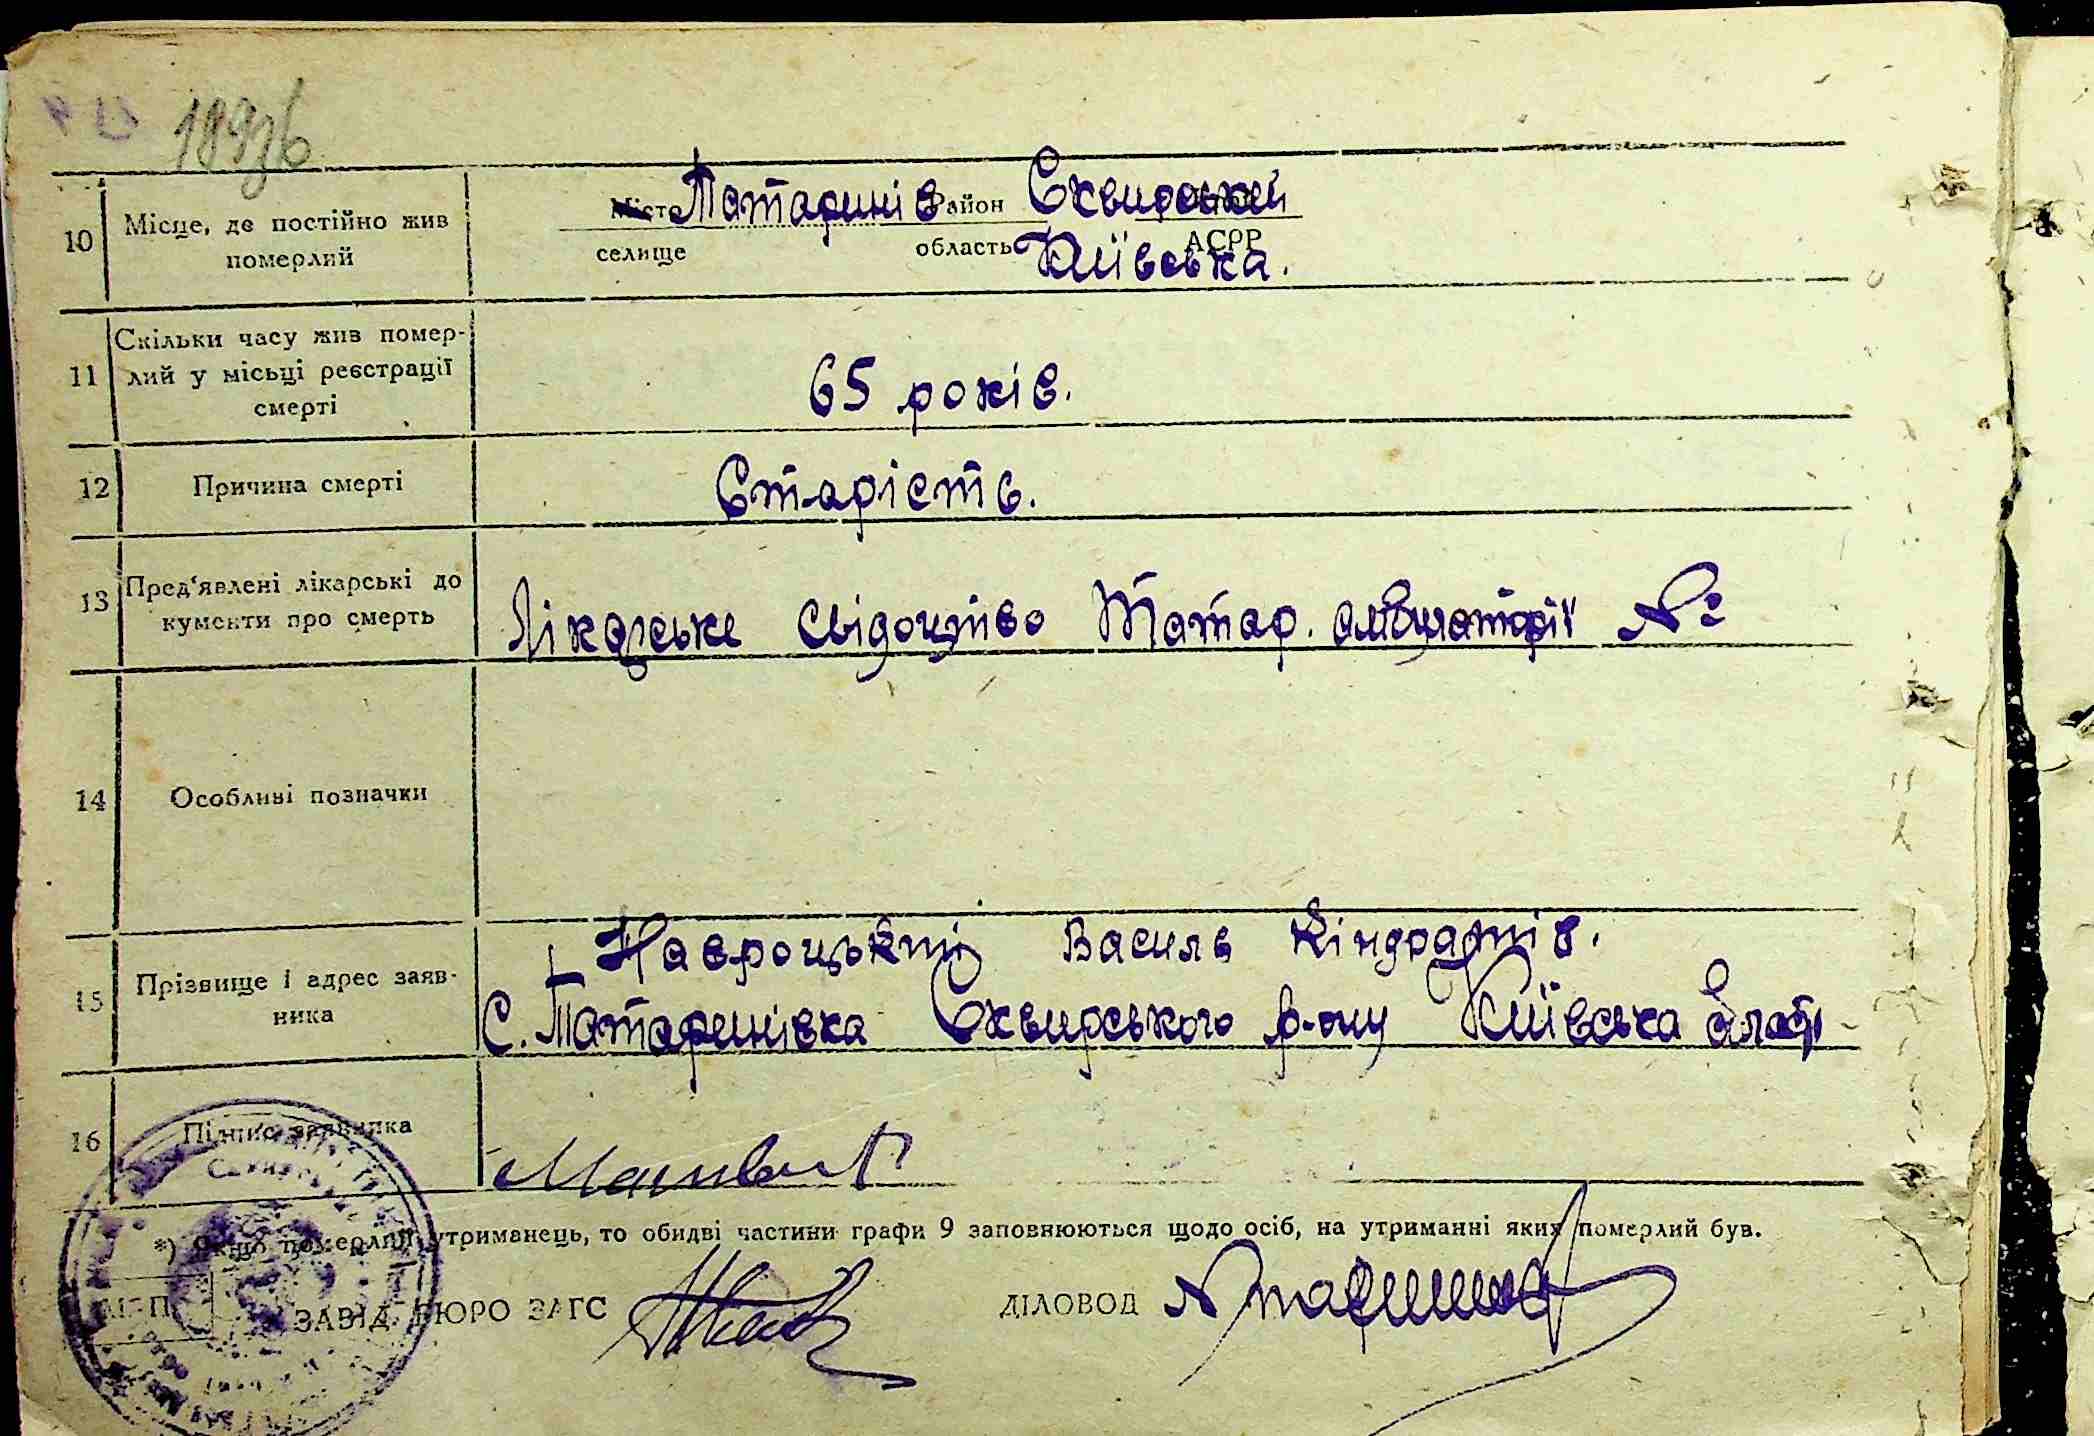 189зв
10 Місце, де постійно жив померлий
Місто Татаринів Район Сквирський
селище область Київська. АСРР
11 Скільки часу жив помер-
лий у місьці реєстрації
смерті
65 років.
12 Причина смерті
Старість.
13 Пред'явлені лікарські до
кументи про смерть
Лікарське свідоцтво Татар. амбулаторії №
14 Особливі позначки
15 Прізвище і адрес заяв-
ника
Навроцький Василь Кіндратів.
С. Татаринівка Сквирського р-ону Київська
16 Підпис заявника
*) Якщо померлий утриманець, то обидві частини графи 9 заповнюються щодо осіб, на утриманні яких померлий був.
М. П.
ЗАВІД. БЮРО ЗАГС
ДІЛОВОД